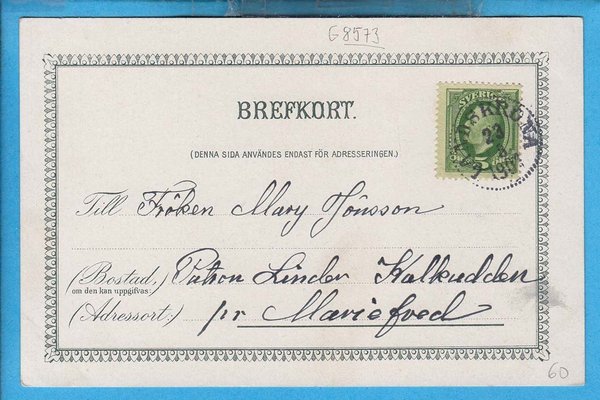 G8573
BREFKORT.
SVERIGE
(DENNA SIDA ANVÄNDES ENDAST FÖR ADRESSERINGEN.)
Till Fröken Mary Jönsson
(Bostad,) Patron Linder Kalkudden
om den kan uppgifvas:
(Adressort:) pr Mariefred
60